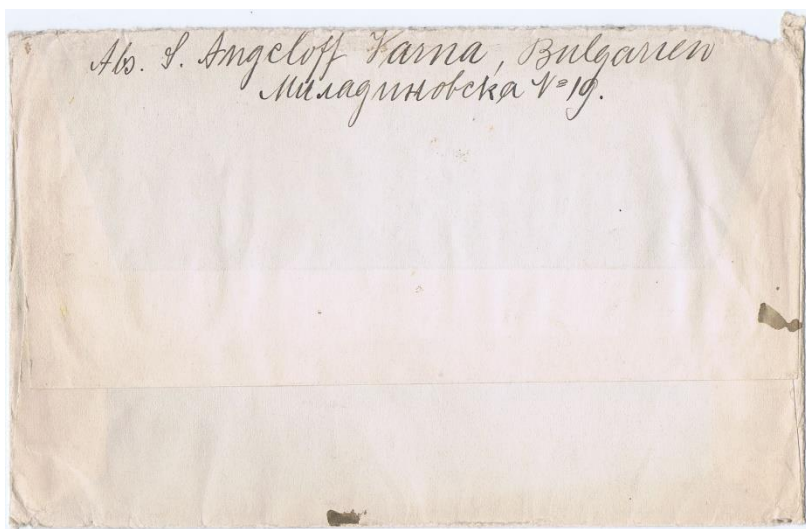 Abs. S. Angeloff Varna, Bulgarien
Миладиновска №19.